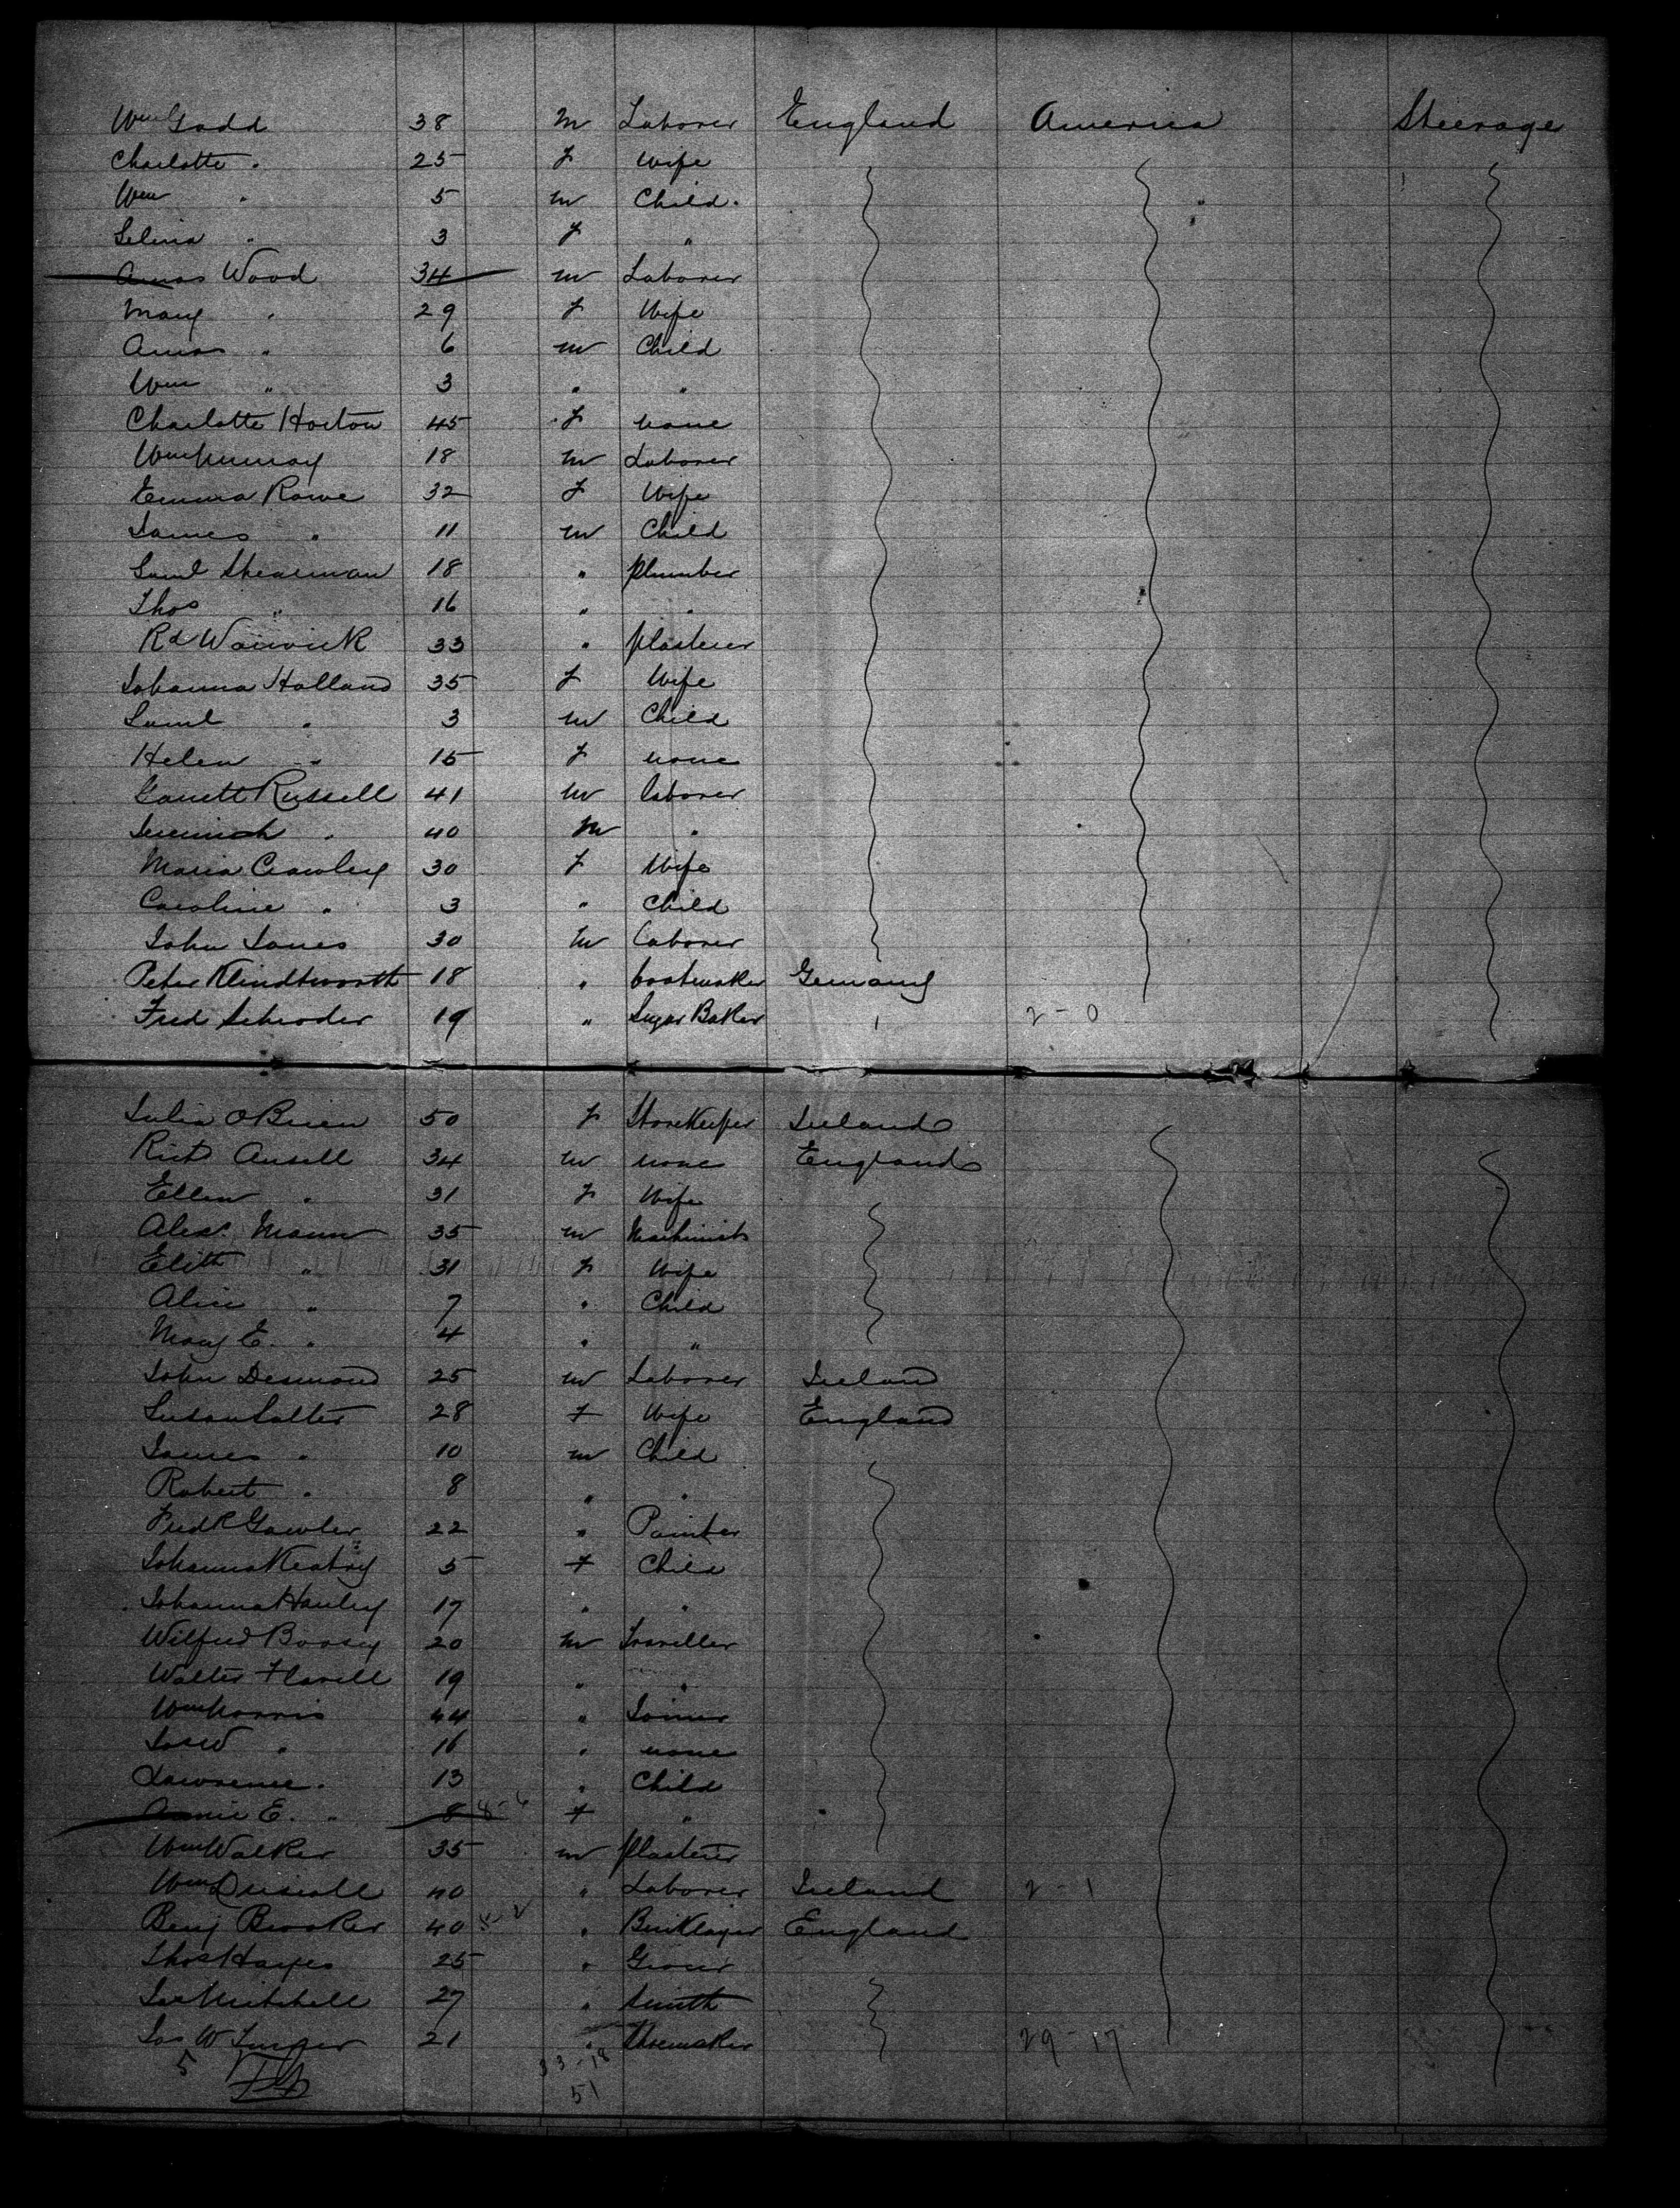 Wm Gadd 38 m Laborer England America Steerage
Charlotte " 25 f Wife
Wm " 5 m Child
Selina " 3 f "
Amos Wood 34 m Laborer
Mary " 29 f Wife
Amos " 6 m Child
Wm " 3 " "
Charlotte Horton 45 f none
Wm Murray 18 m Laborer
Emma Rowe 32 f Wife
James " 11 m Child
Saml Shearman 18 " plumber
Thos " 16 " "
Rd Warwick 33 " plasterer
Johanna Holland 35 f Wife
Saml " 3 m Child
Helen " 15 f none
Garrett Russell 41 m laborer
Jeremiah " 40 m "
Maria Crowley 30 f Wife
Caroline " 3 " Child
John Jones 30 m laborer
Peter Klindtworth 18 " bootmaker Germany
Fred Schroder 19 " Sugar Baker 2-0
Julia O Brien 50 f Storekeeper Ireland
Richd Ansell 34 m none England
Ellen " 31 f Wife
Alexr Mann 35 m Machinist
Elizth " 31 f Wife
Alice " 7 " Child
Mary E. " 4 " "
John Desmond 25 m Laborer Ireland
Susan Salter 28 f Wife England
James " 10 m Child
Robert " 8 " "
Fredk Gawler 22 " Painter
Johanna Keatng 5 f Child
Johanna Hanley 17 " "
Wilfred Boosey 20 m Traveller
Walter Flavell 19 " "
Wm Morris 44 " Joiner
Jas W " 16 " none
Lawrence " 13 " Child
Annie E. " 8 f "
Wm Walker 35 m plasterer
Wm Driscoll 40 " Laborer Ireland 2-1
Benj Brooker 40 " Bricklayer England
Thos Hayes 25 " Grocer
Jas Mitchell 27 " Smith
Jas W 21 " Shoemaker 29-17
5 33-18
51